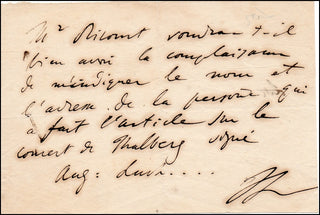 Mr Ricourt voudra-t-il
bien avoir la complaisance
de m'indiquer le nom et
l'adresse de la personne qui
a fait l'article sur le
concert de Thalberg signé
Aug: